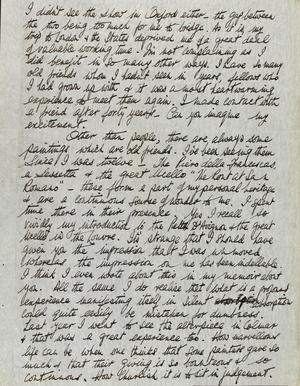 I didn't see the show in Oxford either - the gap between
the two being too much for me to bridge. As it is my
trip to London & the States deprived me of a great deal
of valuable working time. I'm not complaining as I
did benefit in so many other ways. I have so many
old friends whom I hadn't seen in years, fellows who
I had grown up with & it was a most heartwarming
experience to meet them again. I made contact with
a friend after forty years - Can you imagine my
excitement.
Other than people, there are always some
paintings which are old friends. I've been seeing them
since I was twelve! The Piero della Francescas,
a Sassetta & the great Uccello "The Rout at San
Romano" - these form a part of my personal heritage
& are a continuous source of wonder to me. I spent
time there in their presence. Yes I recall
vividly my introduction to the Pietà d'Avignon & the great
Uccello in the Louvre. It's strange that I should have
given you the impression that I was unmoved,
whereas the impression on me has been indelible.
I think I even wrote about this in my memoir about
you. All the same I do realise that is a profound
experience manifesting itself in silent absorption
could quite easily be mistaken for dumbness.
Last year I went to see the altarpiece in Colmar
& that was a great experience too. How marvellous
life can be when one thinks that some painters gave so
much & that their giving is so bountiful & so
continuous. How churlish it is to sit in judgement.